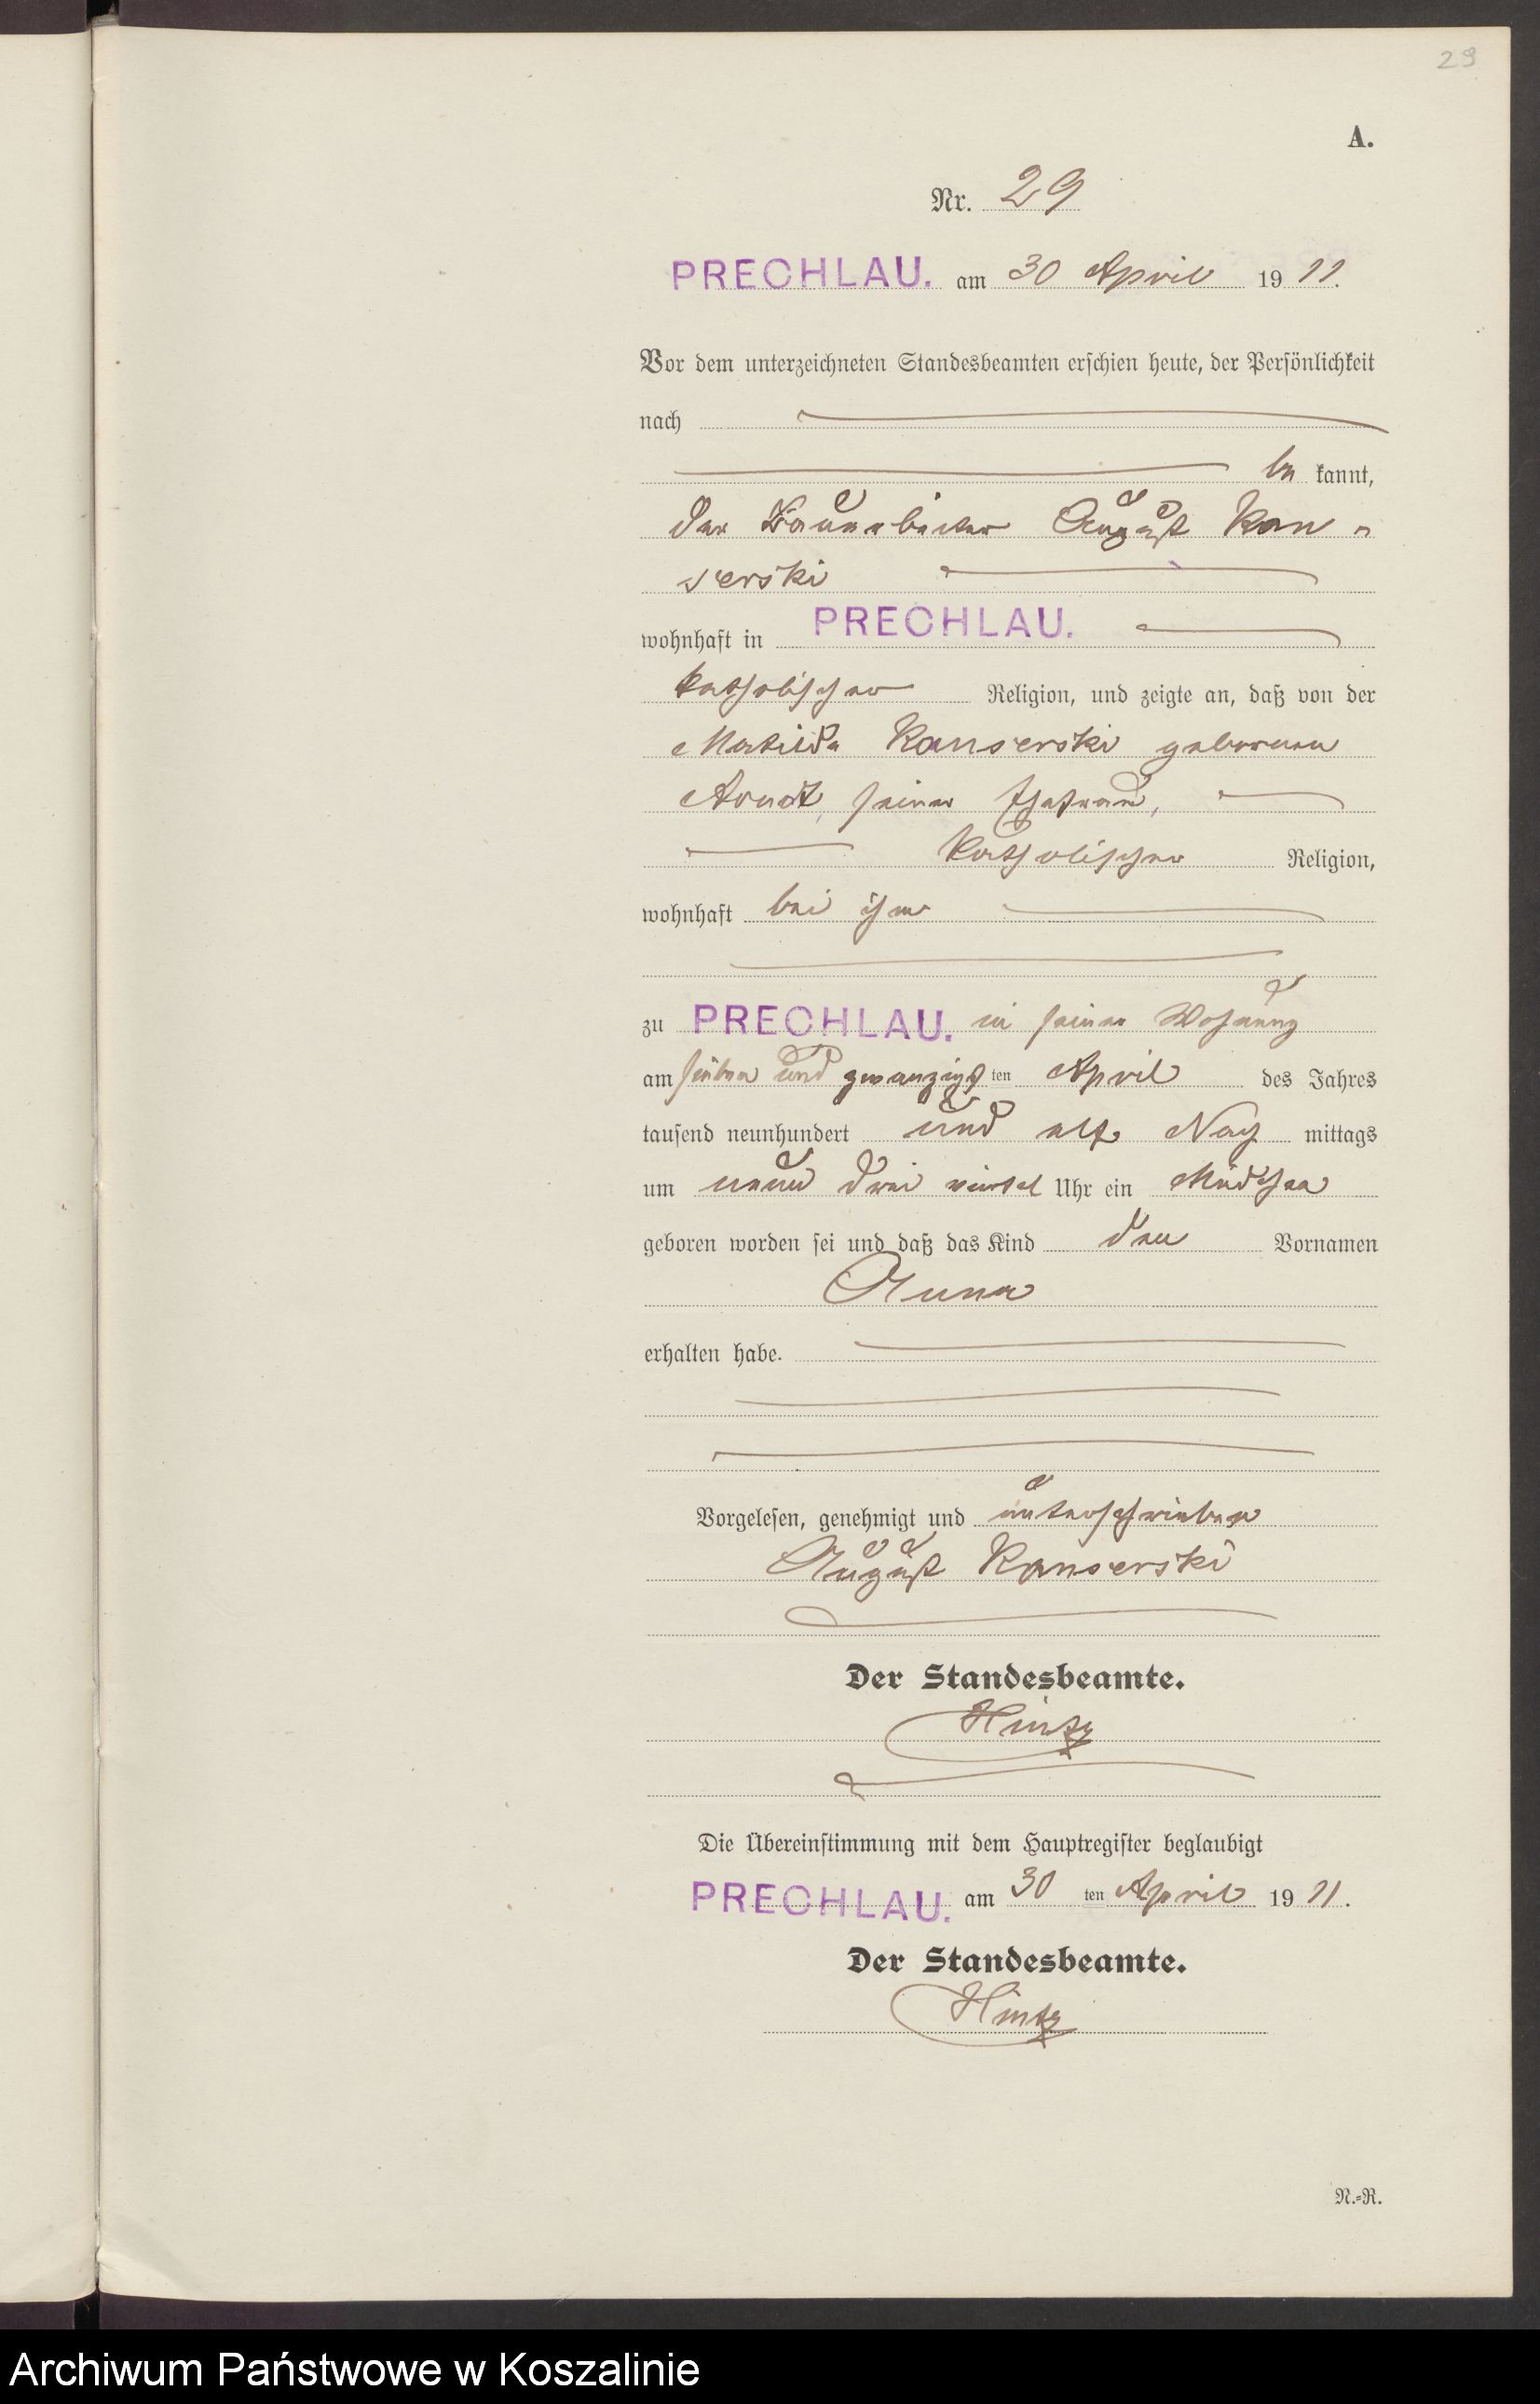 29
A.
Nr. 29
PRECHLAU. am 30 April 19 11.
Vor dem unterzeichneten Standesbeamten erschien heute, der Persönlichkeit
nach
be kannt,
der August Kan-
serski
wohnhaft in PRECHLAU.
katholischer Religion, und zeigte an, daß von der
Matilda Kanserski geborenen
Arndt, seiner Ehefrau,
katholischer Religion,
wohnhaft bei ihm
zu PRECHLAU. in seiner Wohnung
am sieben und zwanzigs ten April des Jahres
tausend neunhundert und elf Nach mittags
um neun drei viertel Uhr ein Mädchen
geboren worden sei und daß das Kind den Vornamen
Anna
erhalten habe.
Vorgelesen, genehmigt und unterschrieben
August Kanserski
Der Standesbeamte.
Hintz
Die Übereinstimmung mit dem Hauptregister beglaubigt
PRECHLAU. am 30 ten April 19 11.
Der Standesbeamte.
Hintz
N.-R.
Archiwum Państwowe w Koszalinie